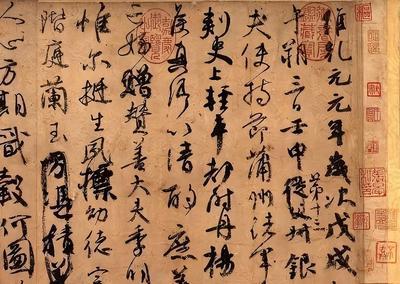 維乾元元年歲次戊戌
午朔三日壬申第十三叔銀
夫使持節蒲州諸軍
刺史上輕車都尉丹楊
侯真卿以清酌庶羞
亡姪贈贊善大夫季明
惟爾挺生夙標幼德宗
階庭蘭玉方憑積
人心方期戩穀何圖